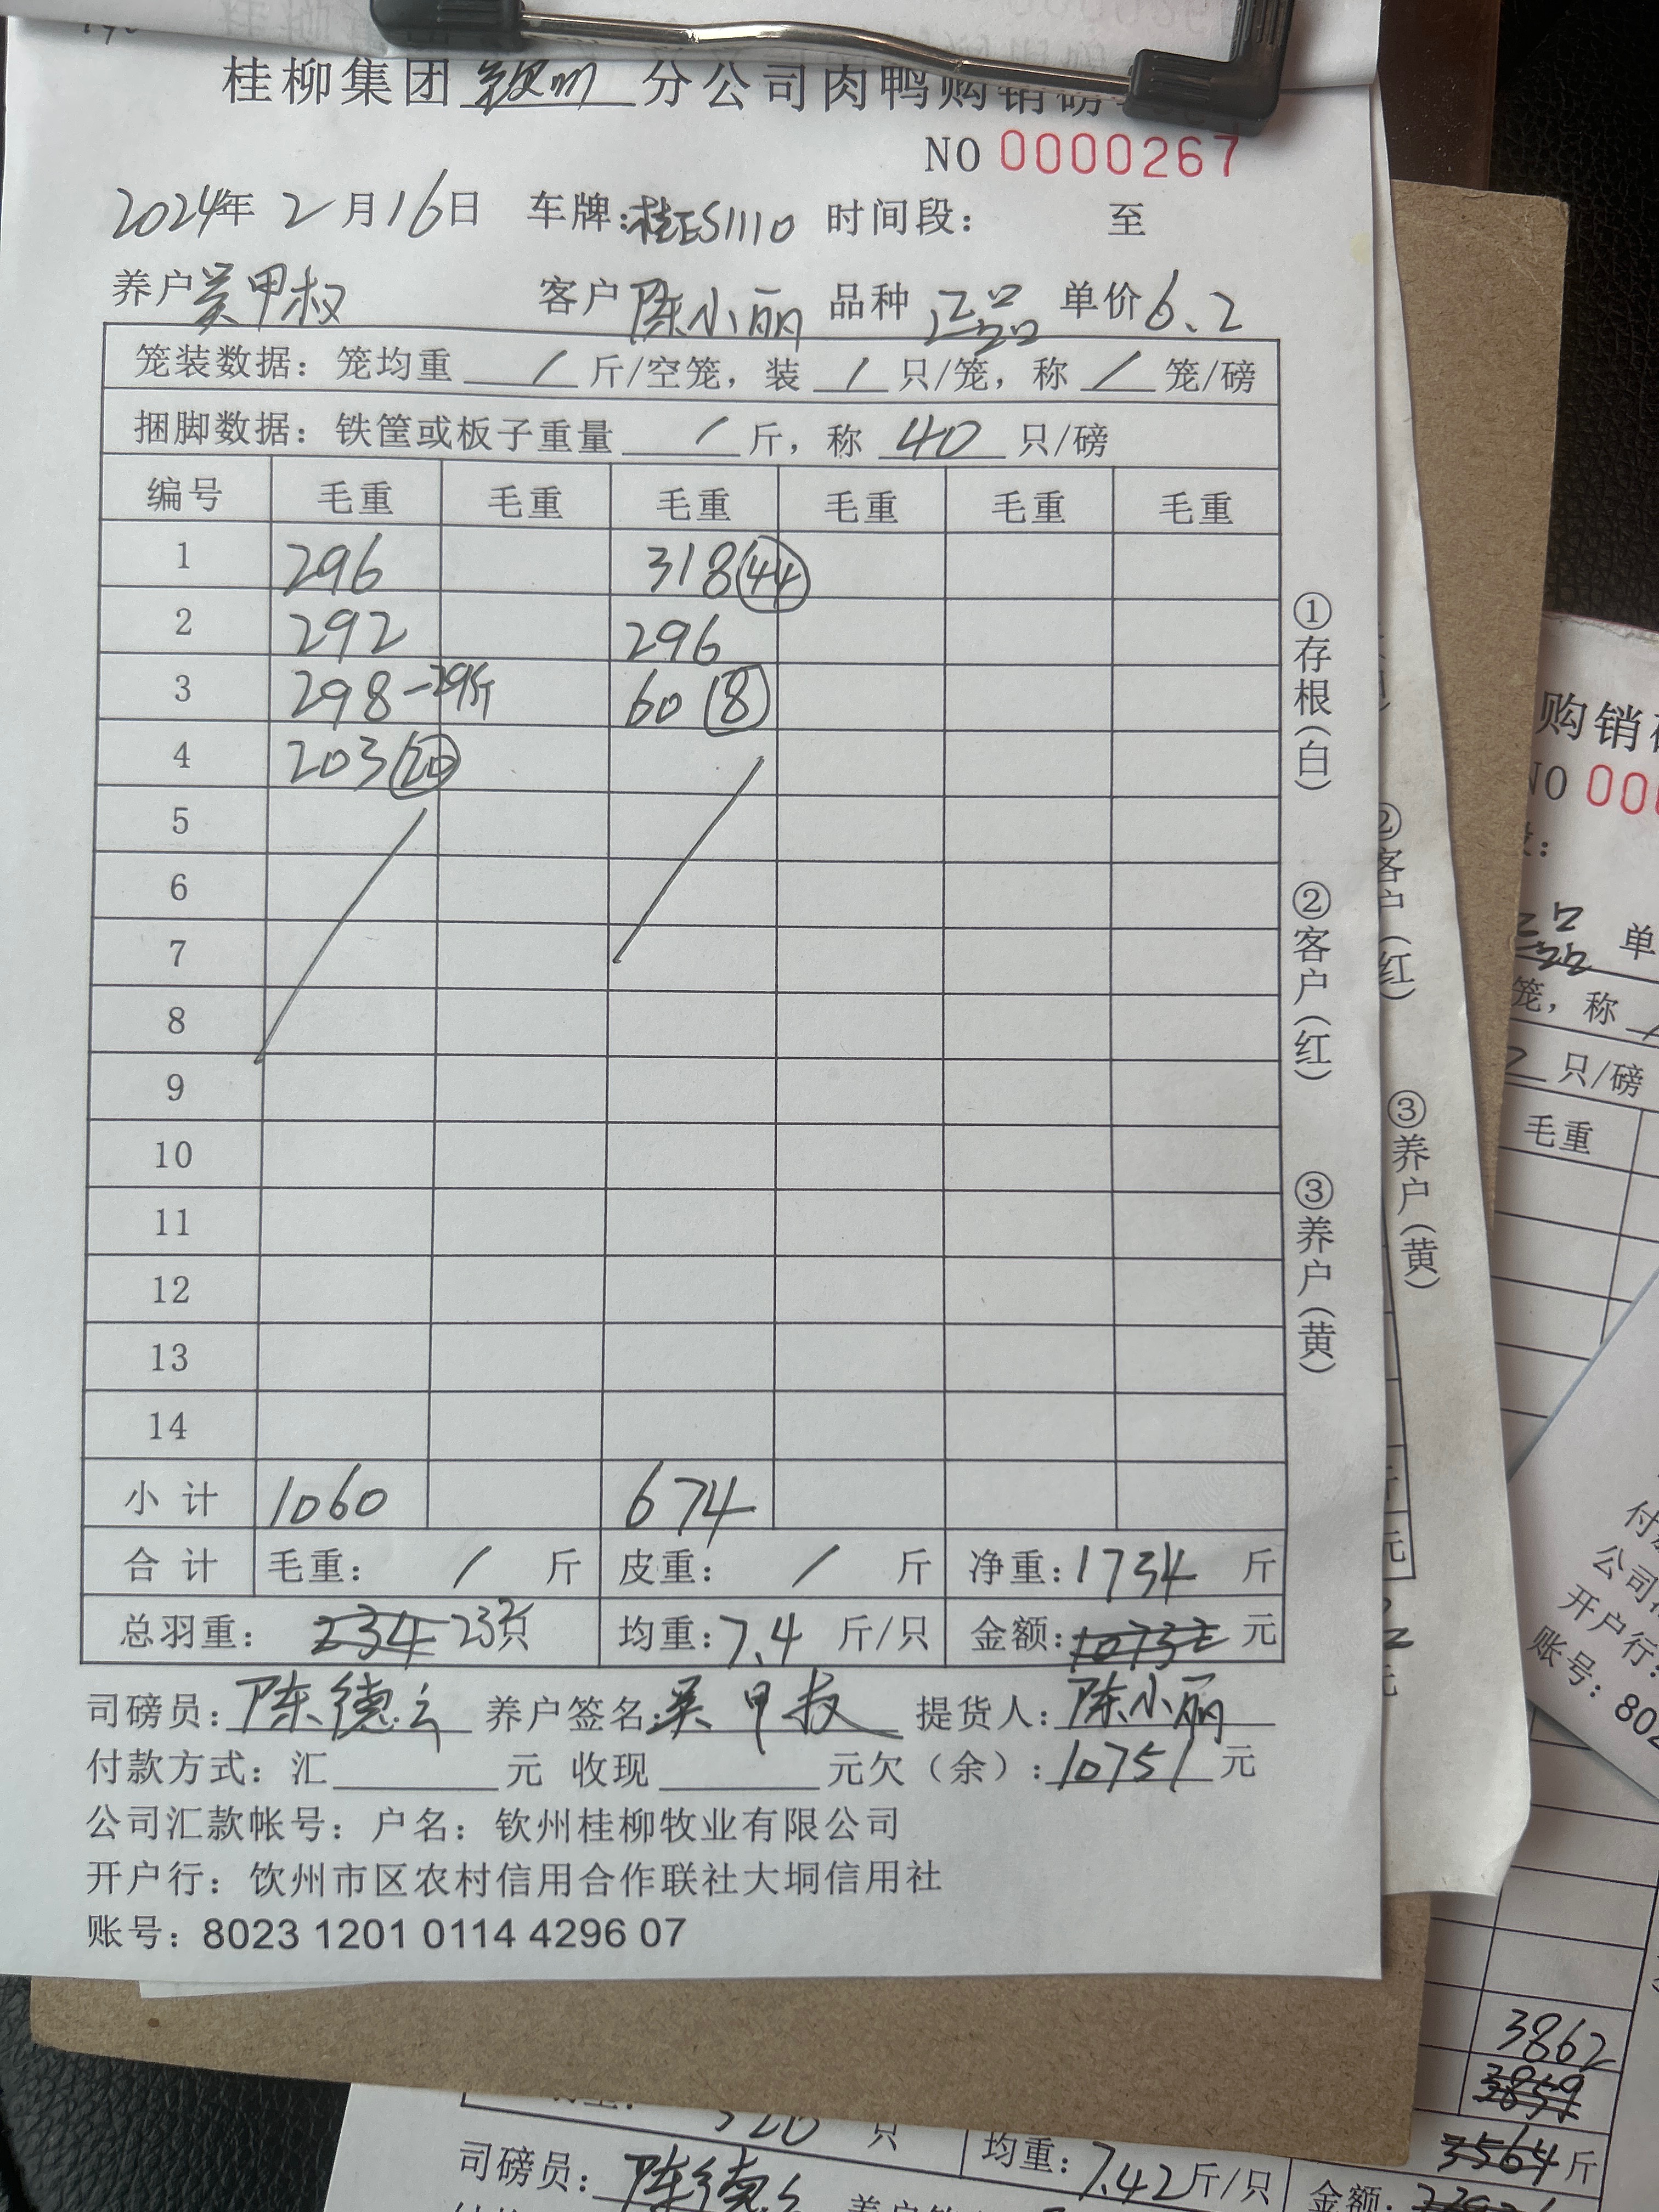 桂柳集团 钦州 分公司肉鸭购销磅
NO 0000267
2024年 2 月 16 日 车牌:桂ES1110 时间段: 至
养户 吴甲权 客户 陈小丽 品种 正品 单价 6.2
笼装数据: 笼均重 / 斤/空笼, 装 / 只/笼, 称 / 笼/磅
捆脚数据: 铁筐或板子重量 / 斤, 称 40 只/磅
编号 毛重 毛重 毛重 毛重 毛重 毛重
1 296 318 (44)
2 292 296
3 298 -29斤 60 (8)
4 203 (20)
5
6
7
8
9
10
11
12
13
14
小计 1060 674
合计 毛重: / 斤 皮重: / 斤 净重: 1734 斤
总羽重: 234 232只 均重: 7.4 斤/只 金额: 元
司磅员: 陈德云 养户签名: 吴甲权 提货人: 陈小丽
付款方式: 汇 元 收现 元欠(余): 10751 元
公司汇款帐号: 户名: 钦州桂柳牧业有限公司
开户行: 饮州市区农村信用合作联社大垌信用社
账号: 8023 1201 0114 4296 07
①存根(白) ②客户(红) ③养户(黄)
②客户(红) ③养户(黄)
元
购销
NO 000
品 单
笼, 称
只/磅
毛重
付
公司
开户行:
账号: 802
3862
3859
3564 斤
320 只 均重: 7.42 斤/只 金额:
司磅员: 陈德云